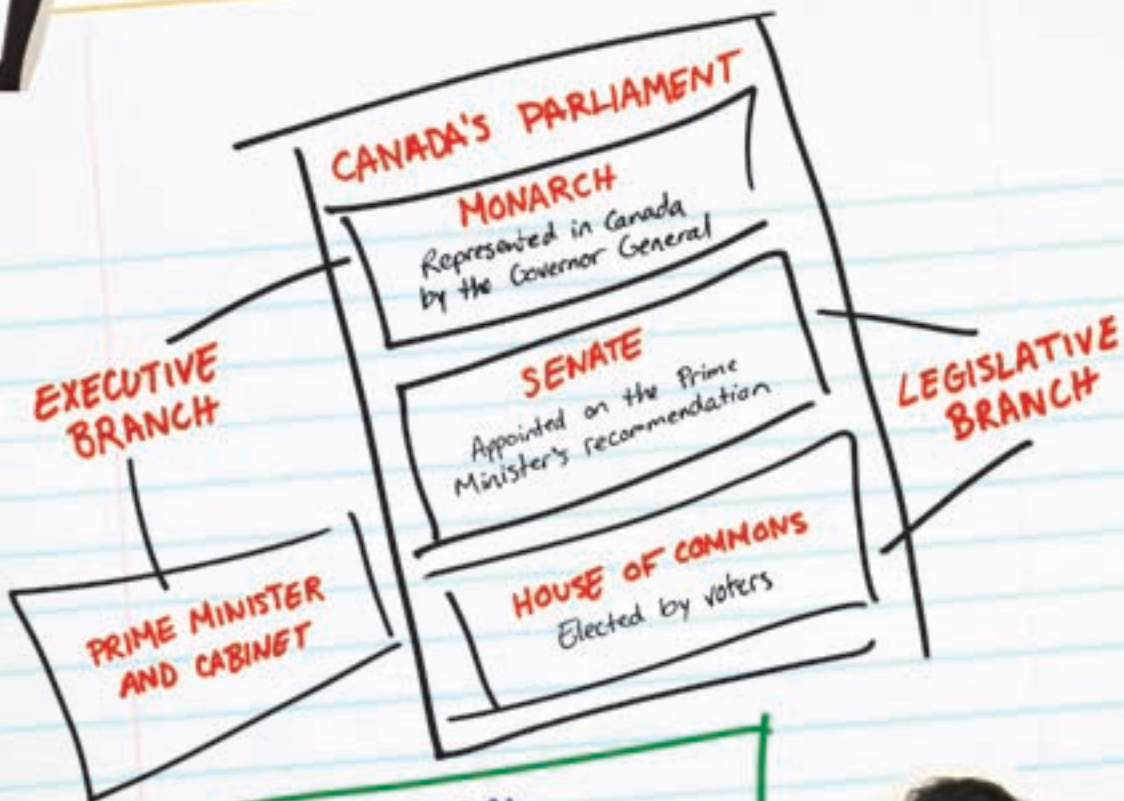 CANADA'S PARLIAMENT
MONARCH
Represented in Canada
by the Governor General
SENATE
Appointed on the Prime
Minister's recommendation
HOUSE OF COMMONS
Elected by voters
EXECUTIVE
BRANCH
PRIME MINISTER
AND CABINET
LEGISLATIVE
BRANCH